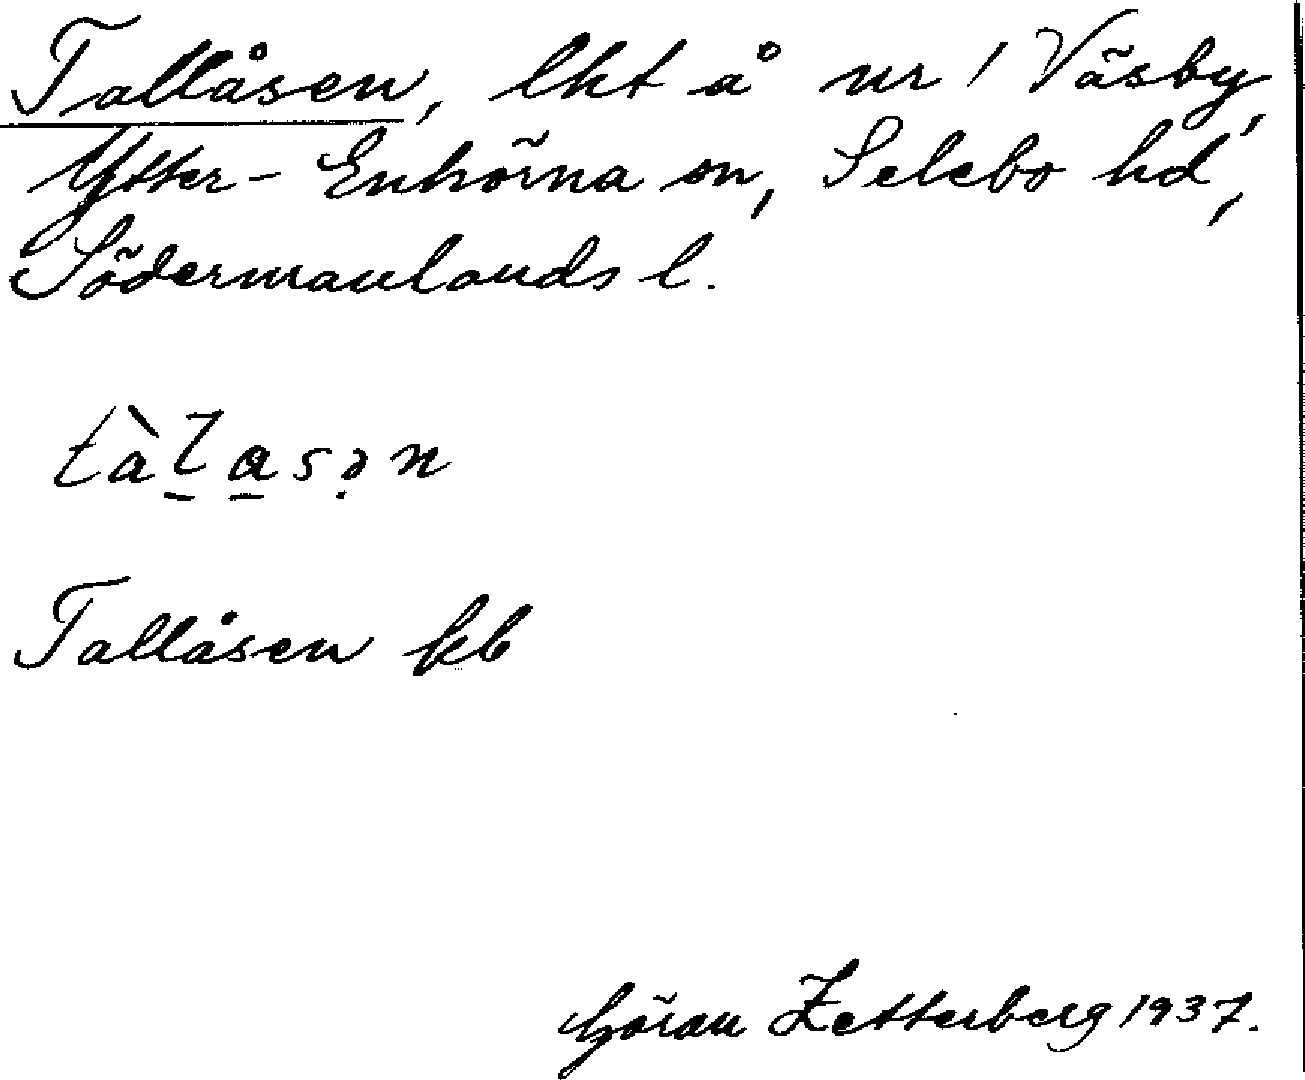 Tallåsen, lht å nr 1 Väsby,
Ytter-Enhörna sn, Selebo hd,
Södermanlands l.
tàl̠a̠sə̣n
Tallåsen kb
Göran Zetterberg 1937.